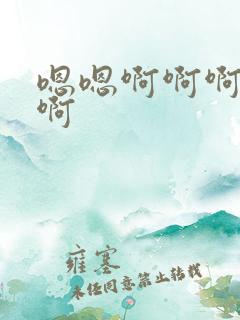 嗯嗯啊啊啊
啊
雍塞
未经同意禁止转载